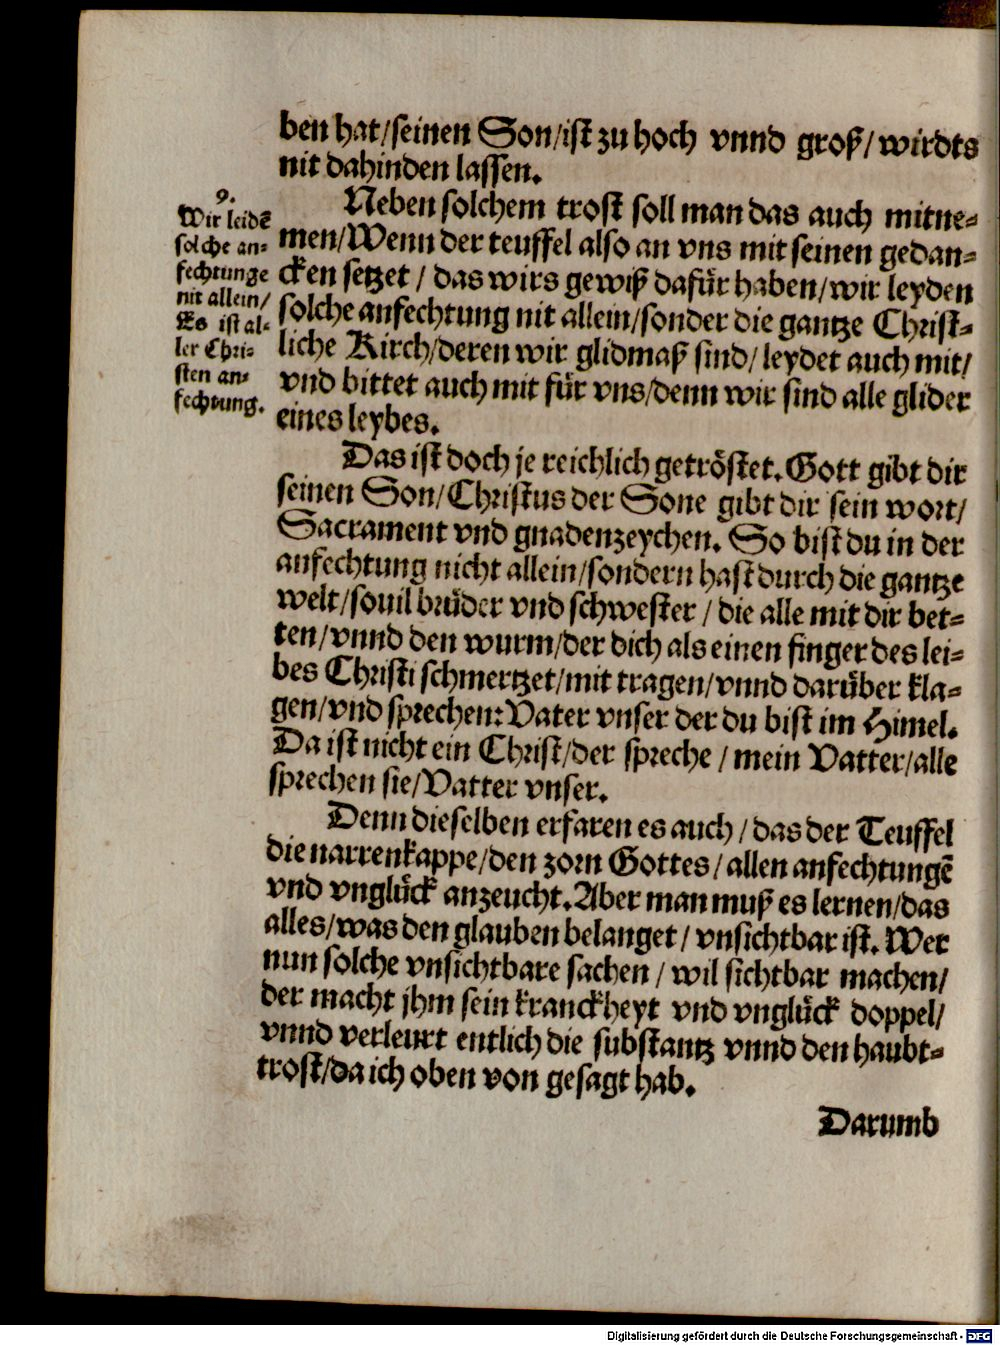 ben hat/seinen Son/ist zu hoch vnnd groß/wirdts
nit dahinden lassen.
9.
Wir leidē
solche an-
fechtunge
nit allein/
Es ist al-
ler Chri-
sten an-
fechtung.
Neben solchem trost soll man das auch mitne-
men/Wenn der teuffel also an vns mit seinen gedan-
cken setzet/das wirs gewiß dafür haben/wir leyden
solche anfechtung nit allein/sonder die gantze Christ-
liche Kirch/deren wir glidmaß sind/leydet auch mit/
vnd bittet auch mit für vns/denn wir sind alle glider
eines leybes.
Das ist doch je reichlich getröstet. Gott gibt dir
seinen Son/Christus der Sone gibt dir sein wort/
Sacrament vnd gnadenzeychen. So bist du in der
anfechtung nicht allein/sondern hast durch die gantze
welt/souil brüder vnd schwester/die alle mit dir bet-
ten/vnnd den wurm/der dich als einen finger des lei-
bes Christi schmertzet/mit tragen/vnnd darüber kla-
gen/vnd sprechen: Vater vnser der du bist im Himel.
Da ist nicht ein Christ/der spreche/mein Vatter/alle
sprechen sie/Vatter vnser.
Denn dieselben erfaren es auch/das der Teuffel
die narrenkappe/den zorn Gottes/allen anfechtungē
vnd vnglück anzeucht. Aber man muß es lernen/das
alles/was den glauben belanget/vnsichtbar ist. Wer
nun solche vnsichtbare sachen/wil sichtbar machen/
der macht jhm sein kranckheyt vnd vnglück doppel/
vnnd verleurt entlich die substantz vnnd den haubt-
trost/da ich oben von gesagt hab.
Darumb
Digitalisierung gefördert durch die Deutsche Forschungsgemeinschaft - DFG